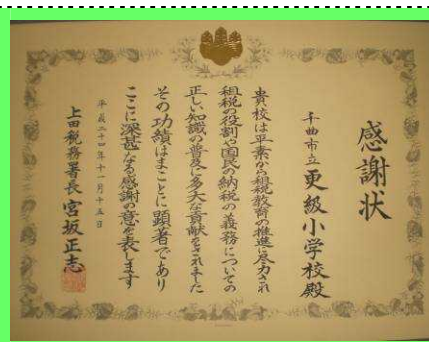 感謝状
千曲市立 更級小学校殿
貴校は平素から租税教育の推進に尽力され
租税の役割や国民の納税の義務についての
正しい知識の普及に多大な貢献をされました
その功績はまことに顕著であり
ここに深甚なる感謝の意を表します
平成二十四年十一月十五日
上田税務署長 宮坂正志